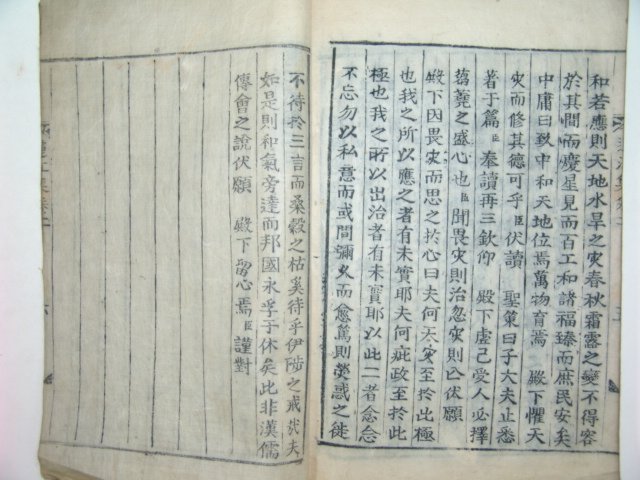 和若應則天地水旱之灾春秋霜露之變不得容
於其間而慶星見而百工和諸福臻而庶民安矣
中庸曰致中和天地位焉萬物育焉 殿下懼天
灾而修其德可乎臣伏讀 聖策曰子大夫止悉
著于篇臣奉讀再三欽仰 殿下虛己受人必擇
蒭蕘之盛心也臣聞畏灾則治忽灾則亡伏願
殿下因畏灾而思之於心曰夫何大灾至於此極
也我之所以應之者有未實耶夫何疵政至於此
極也我之所以出治者有未實耶以此二者念念
不忘勿以私意而或間彌久而愈篤則熒惑之徙
不待於三言而桑穀之枯奚待乎伊陟之戒哉夫
如是則和氣旁達而邦國永孚于休矣此非漢儒
傳會之說伏願 殿下留心焉臣謹對